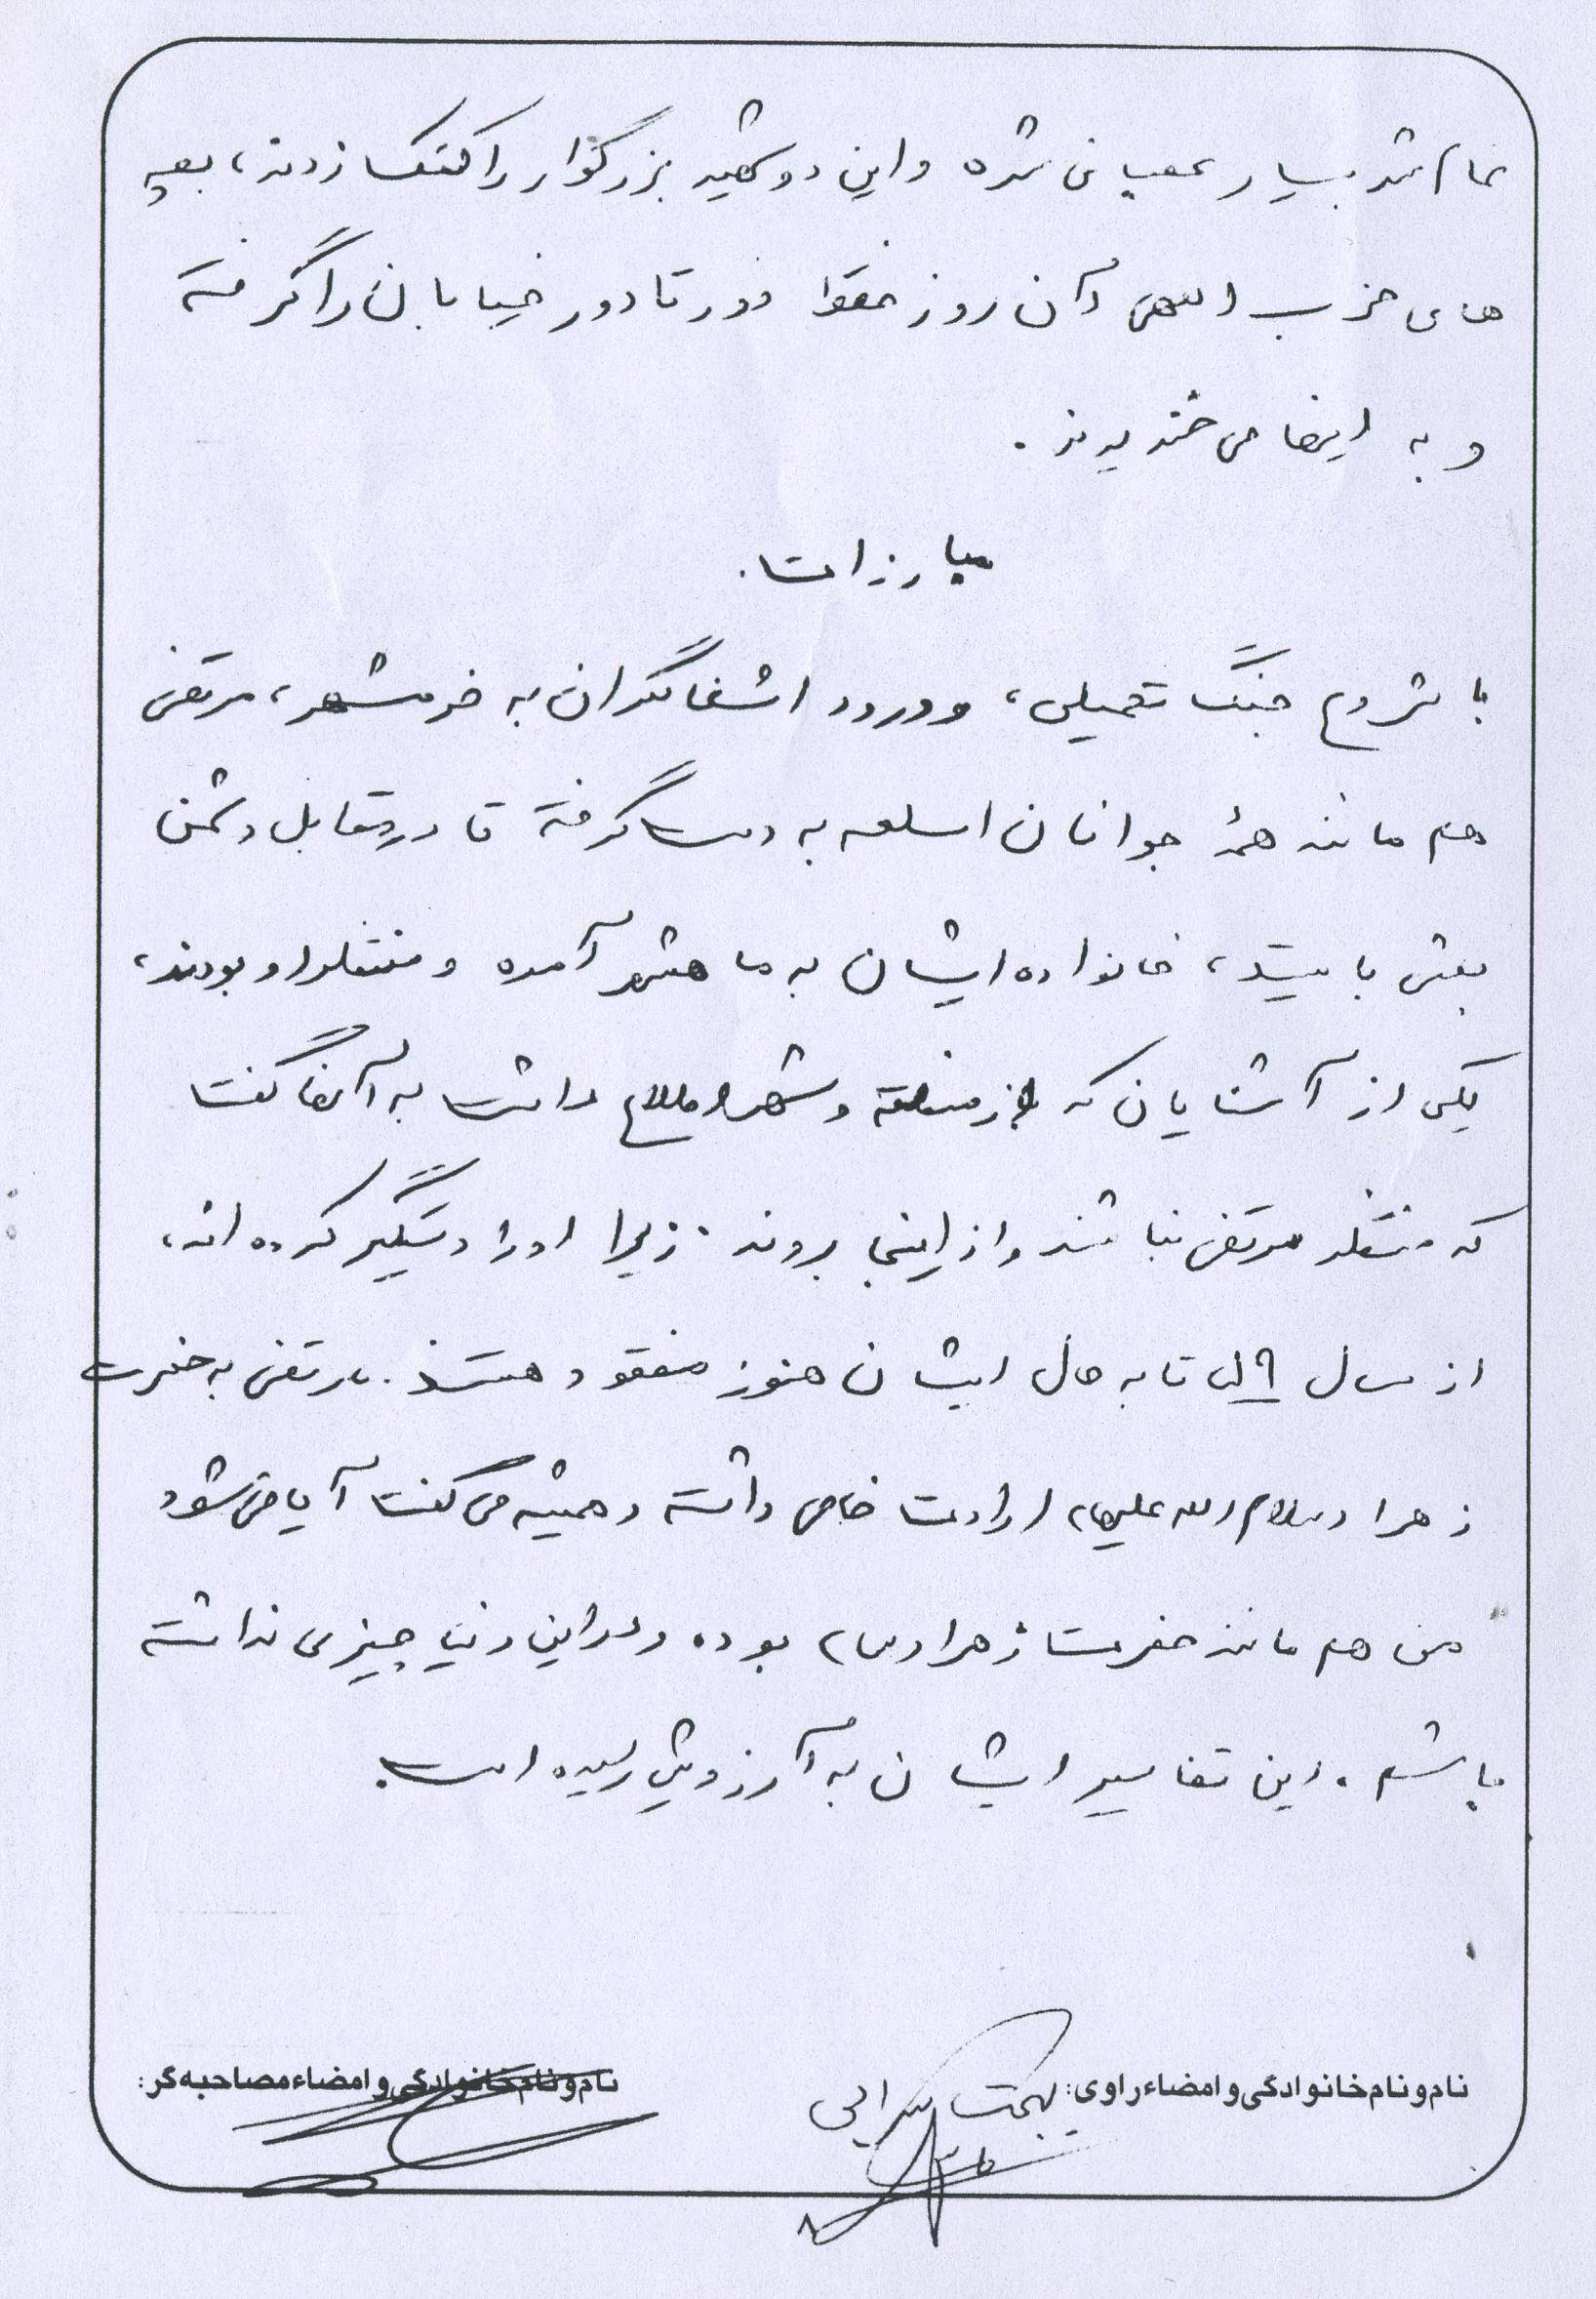 تمام شد بسیار عصبانی شده و این دو شهید بزرگوار را کتک زدند، بچه
های حزب اللهی آن روز فقط دور تا دور خیابان را گرفته
و به اینها می خندیدند.
مبارزات.
با شروع جنگ تحمیلی، و ورود اشغالگران به خرمشهر، مرتضی
هم مانند همهٔ جوانان اسلحه به دست گرفته تا در مقابل دشمن
بعثی بایستد، خانواده ایشان به ماهشهر آمده و منتظر او بودند،
یکی از آشنایان که از منطقه و شهر اطلاع داشت به آنها گفت
که منتظر مرتضی نباشند و از اینجا بروند زیرا او را دستگیر کرده اند،
از سال تا به حال ایشان هنوز مفقود هستند. مرتضی به حضرت
زهرا (سلام الله علیها) ارادت خاصی داشته و همیشه می گفت آیا می شود
من هم مانند حضرت زهرا (س) بوده و در این دنیا چیزی نداشته
باشم. این تفاسیر ایشان به آرزویش رسیده است.
نام و نام خانوادگی و امضاء راوی: بهجت
نام و نام خانوادگی و امضاء مصاحبه گر: